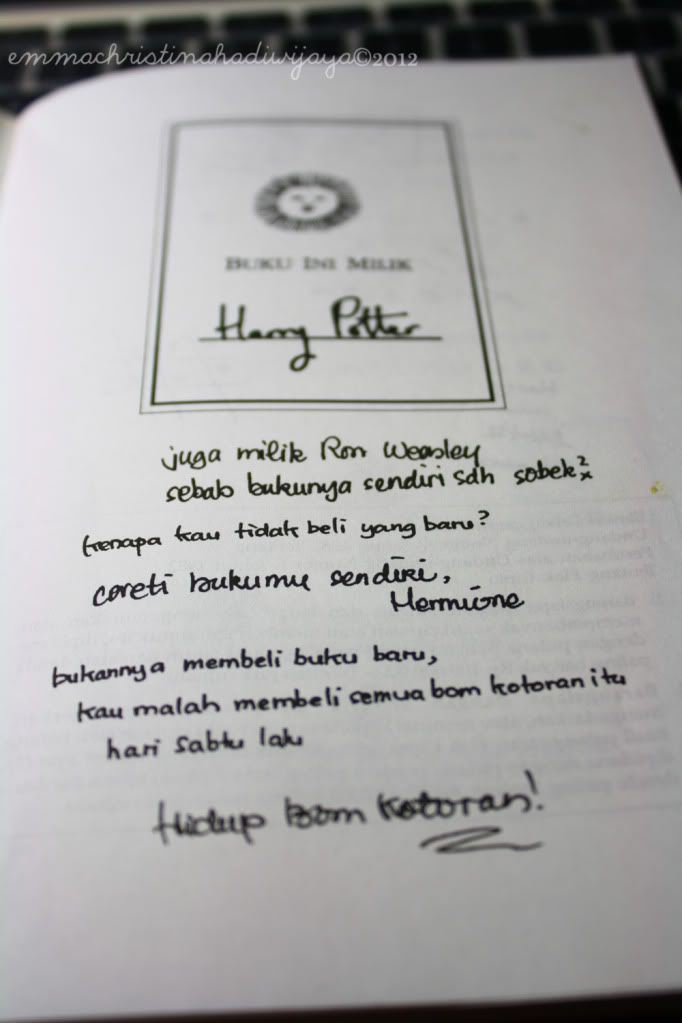 emmachristinahadiwijaya©2012
BUKU INI MILIK
Harry Potter
juga milik Ron Weasley
sebab bukunya sendiri sdh sobek²x
kenapa kau tidak beli yang baru?
coreti bukumu sendiri,
Hermione
bukannya membeli buku baru,
kau malah membeli semua bom kotoran itu
hari sabtu lalu
Hidup bom kotoran!